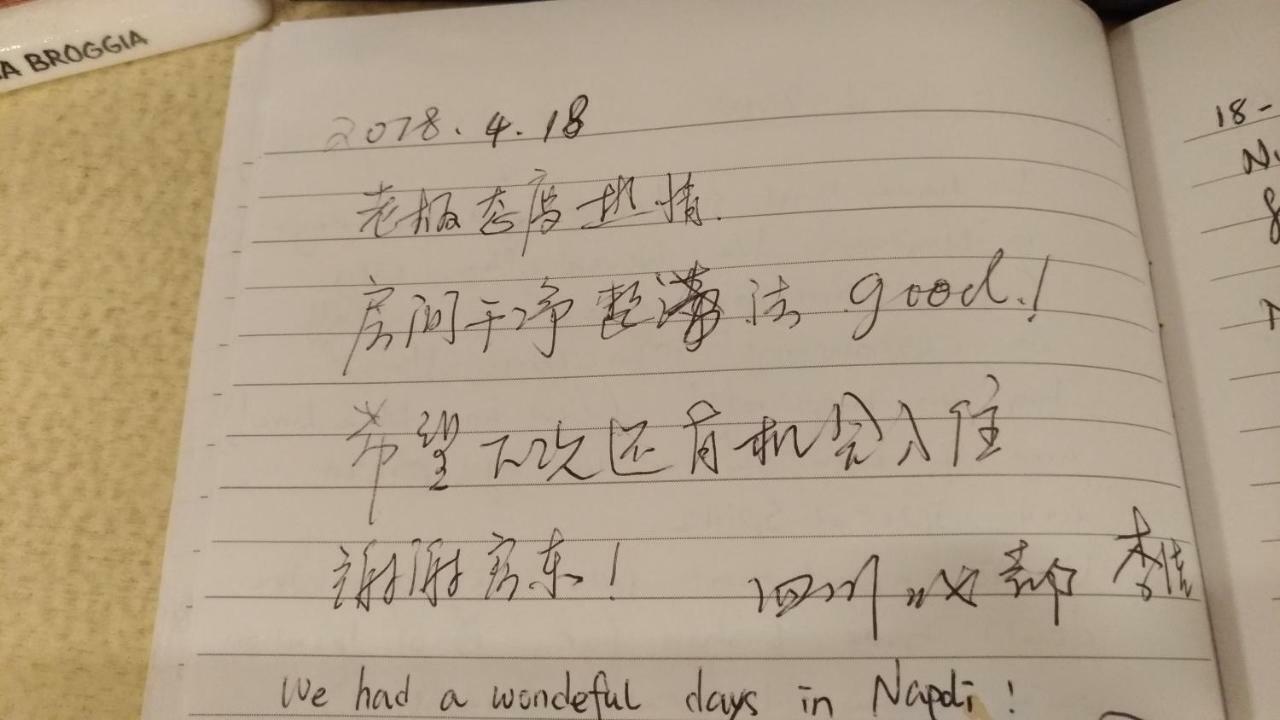 A BROGGIA
2018.4.18
老板态度热情.
房间干净整洁 good.!
希望下次还有机会入住
谢谢房东!
四川成都 李倩
We had a wondeful days in Napoli!
18-